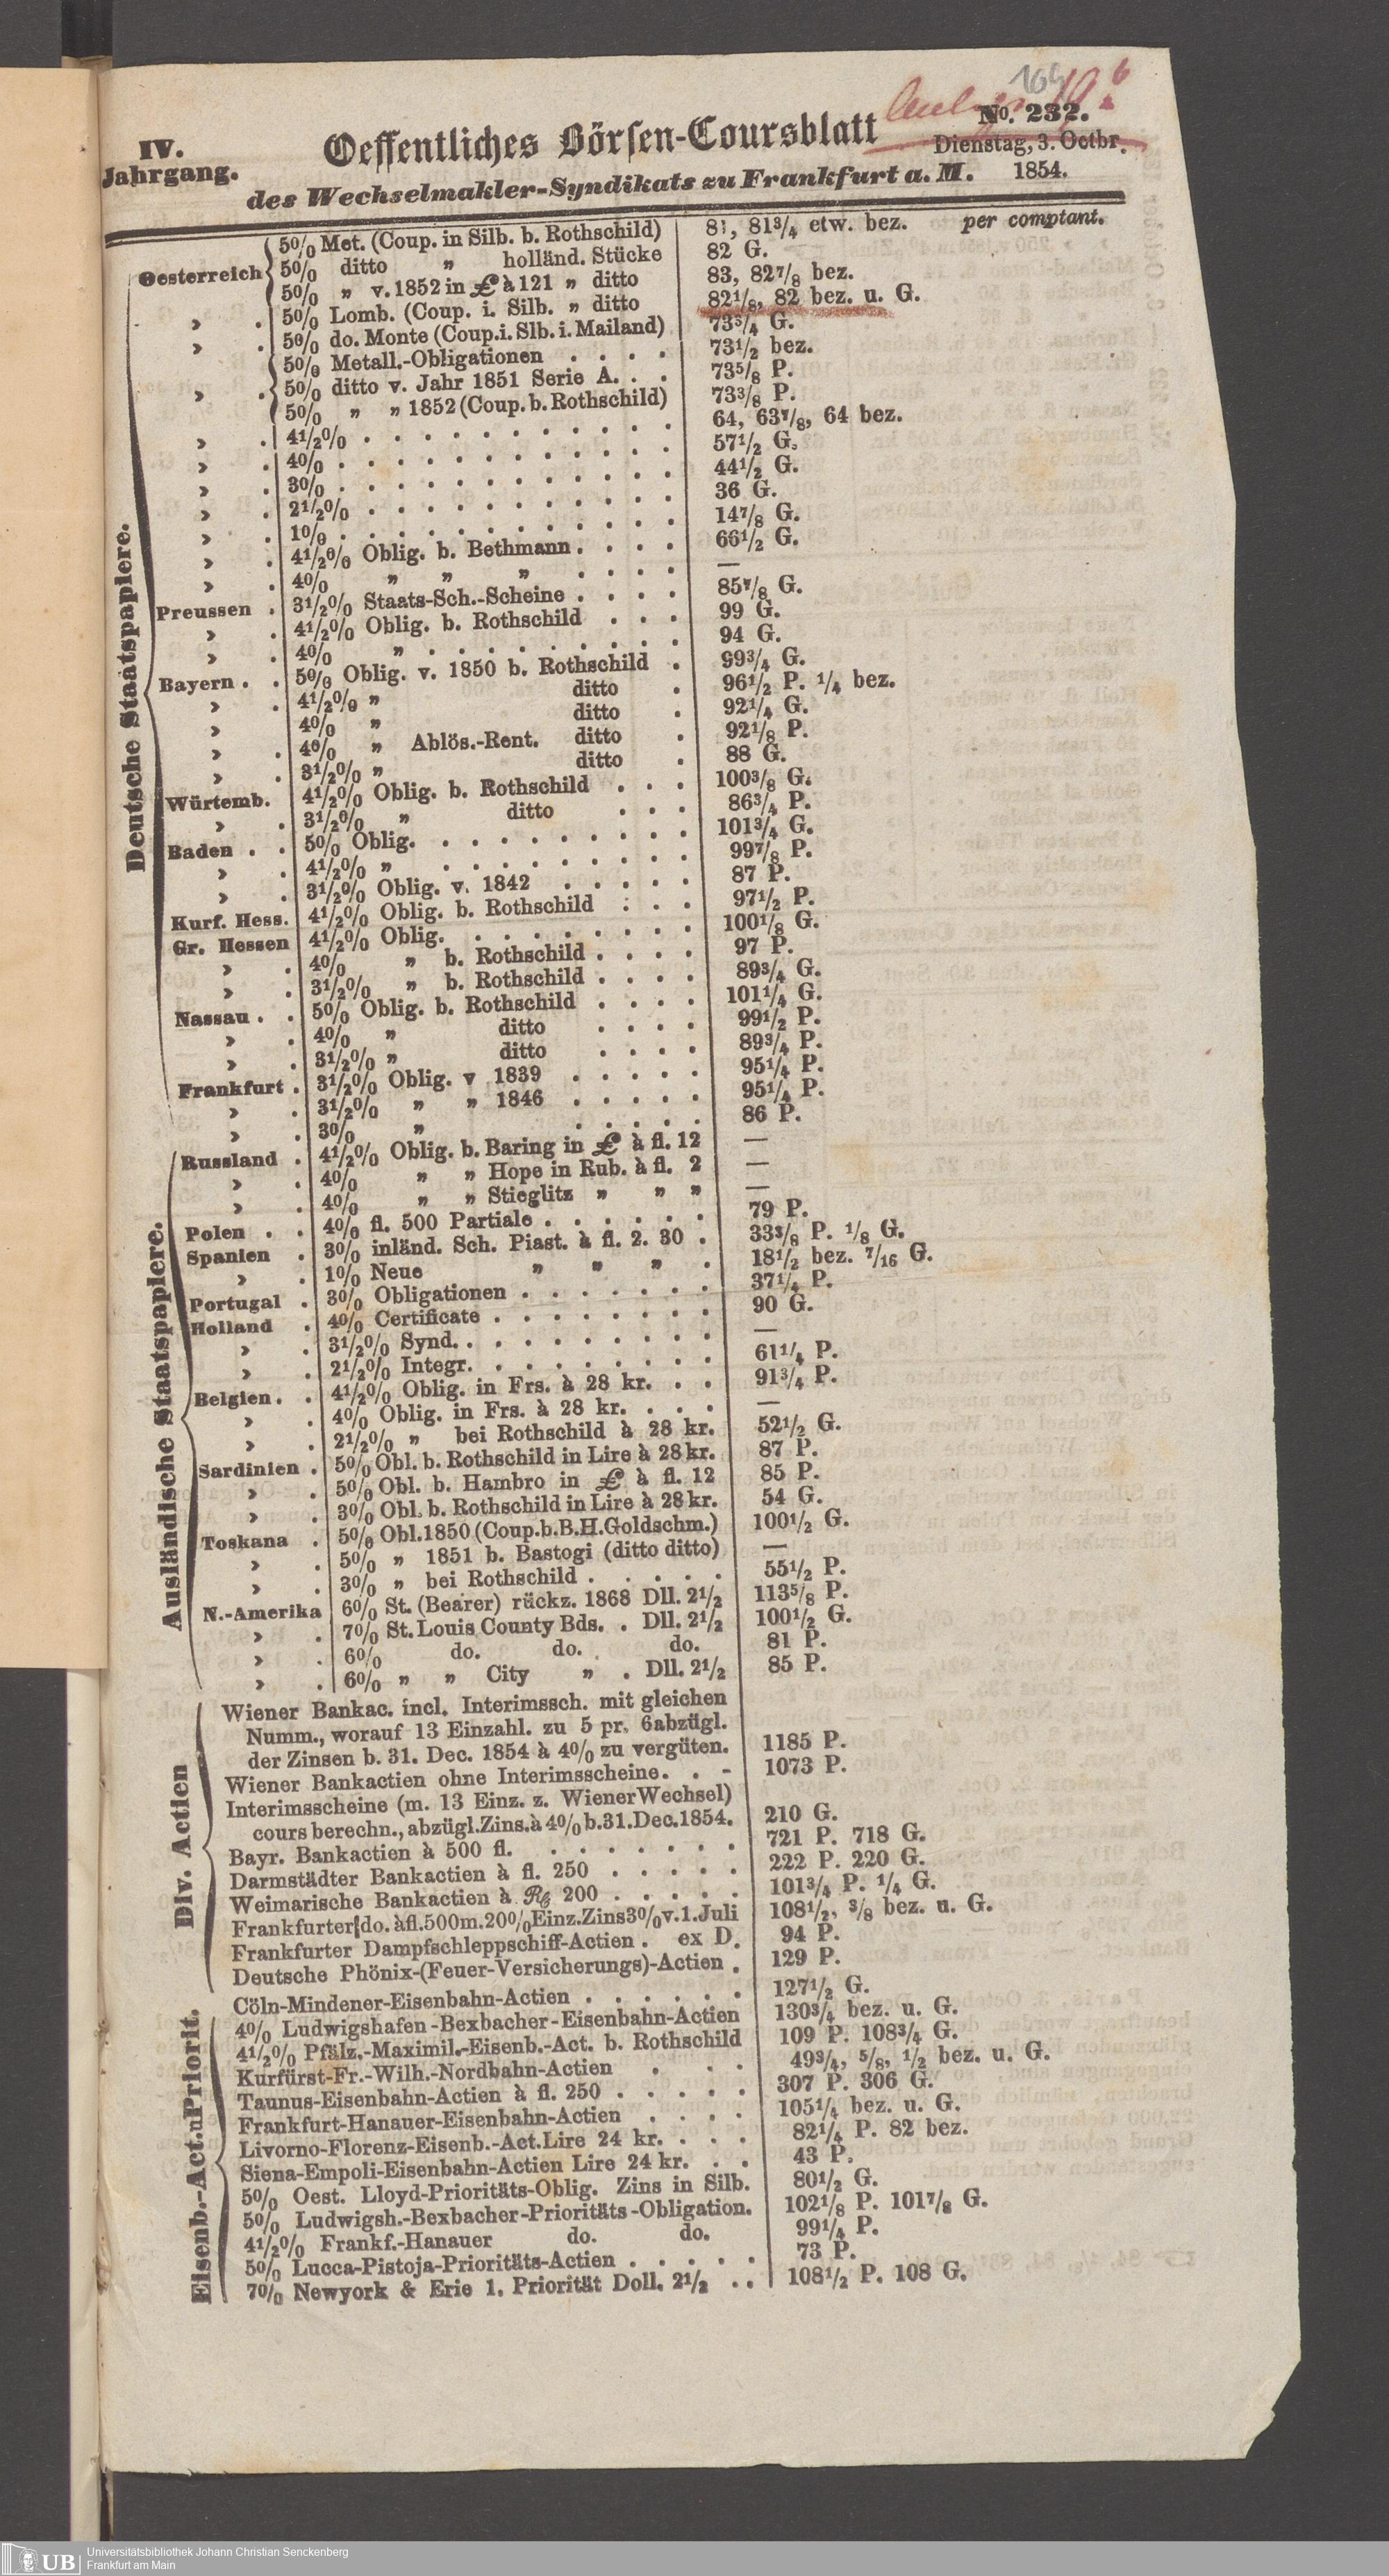 IV. Jahrgang.
Oeffentliches Börsen-Coursblatt
des Wechselmakler-Syndikats zu Frankfurt a. M.
169
No. 232.
Dienstag, 3. Octbr. 1854.
Deutsche Staatspapiere.
Oesterreich 5% Met. (Coup. in Silb. b. Rothschild) 81, 81³/₄ etw. bez. per comptant.
5% ditto „ holländ. Stücke 82 G.
5% „ v. 1852 in £ à 121 „ ditto 83, 82⁷/₈ bez.
» . 5% Lomb. (Coup. i. Silb. „ ditto 82¹/₈, 82 bez. u. G.
» . 5% do. Monte (Coup. i. Slb. i. Mailand) 73³/₄ G.
5% Metall.-Obligationen . . . . 73¹/₂ bez.
» . 5% ditto v. Jahr 1851 Serie A. . . 73⁵/₈ P.
5% „ „ 1852 (Coup. b. Rothschild) 73³/₈ P.
» . 4¹/₂% . . . . . . . . . . . 64, 63⁷/₈, 64 bez.
» . 4% . . . . . . . . . . . . 57¹/₂ G.
» . 3% . . . . . . . . . . . . 44¹/₂ G.
» . 2¹/₂% . . . . . . . . . . . 36 G.
» . 1% . . . . . . . . . . . . 14⁷/₈ G.
» . 4¹/₂% Oblig. b. Bethmann . . . . 66¹/₂ G.
» . 4% „ „ „ . . . . —
Preussen . 3¹/₂% Staats-Sch.-Scheine . . . . 85⁷/₈ G.
» . 4¹/₂% Oblig. b. Rothschild . . . 99 G.
» . 4% „ . . . . . . . . . 94 G.
Bayern . . 5% Oblig. v. 1850 b. Rothschild . 99³/₄ G.
» . 4¹/₂% „ ditto . 96¹/₂ P. ¹/₄ bez.
» . 4% „ ditto . 92¹/₄ G.
» . 4% „ Ablös.-Rent. ditto . 92¹/₈ P.
» . 3¹/₂% „ ditto . 88 G.
Würtemb. 4¹/₂% Oblig. b. Rothschild . . . 100³/₈ G.
» . 3¹/₂% „ ditto . . . 86³/₄ P.
Baden . . 5% Oblig. . . . . . . . . . 101³/₄ G.
» . 4¹/₂% „ . . . . . . . . . 99⁷/₈ P.
» . 3¹/₂% Oblig. v. 1842 . . . . . 87 P.
Kurf. Hess. 4¹/₂% Oblig. b. Rothschild . . . 97¹/₂ P.
Gr. Hessen 4¹/₂% Oblig. . . . . . . . . 100¹/₈ G.
» . 4% „ b. Rothschild . . . . 97 P.
» . 3¹/₂% „ b. Rothschild . . . . 89³/₄ G.
Nassau . . 5% Oblig. b. Rothschild . . . . 101¹/₄ G.
» . 4% „ ditto . . . . 99¹/₂ P.
» . 3¹/₂% „ ditto . . . . 89³/₄ P.
Frankfurt . 3¹/₂% Oblig. v 1839 . . . . . 95¹/₄ P.
» . 3¹/₂% „ „ 1846 . . . . . 95¹/₄ P.
» . 3% „ . . . . . 86 P.
Ausländische Staatspapiere.
Russland . 4¹/₂% Oblig. b. Baring in £ à fl. 12 —
» . 4% „ „ Hope in Rub. à fl. 2 —
» . 4% „ „ Stieglitz „ „ „ —
Polen . . 4% fl. 500 Partiale . . . . . . 79 P.
Spanien . 3% inländ. Sch. Piast. à fl. 2. 30 . 33³/₈ P. ¹/₈ G.
» . 1% Neue „ „ „ . 18¹/₂ bez. ⁷/₁₆ G.
Portugal . 3% Obligationen . . . . . . . 37¹/₄ P.
Holland . 4% Certificate . . . . . . . . 90 G.
» . 3¹/₂% Synd. . . . . . . . . . —
» . 2¹/₂% Integr. . . . . . . . . 61¹/₄ P.
Belgien . . 4¹/₂% Oblig. in Frs. à 28 kr. . . 91³/₄ P.
» . 4% Oblig. in Frs. à 28 kr. . . . —
» . 2¹/₂% „ bei Rothschild à 28 kr. 52¹/₂ G.
Sardinien . 5% Obl. b. Rothschild in Lire à 28 kr. 87 P.
» . 5% Obl. b. Hambro in £ à fl. 12 85 P.
» . 3% Obl. b. Rothschild in Lire à 28 kr. 54 G.
Toskana . 5% Obl. 1850 (Coup. b. B. H. Goldschm.) 100¹/₂ G.
» . 5% „ 1851 b. Bastogi (ditto ditto) —
» . 3% „ bei Rothschild . . . . . 55¹/₂ P.
N.-Amerika 6% St. (Bearer) rückz. 1868 Dll. 2¹/₂ 113⁵/₈ P.
» . 7% St. Louis County Bds. . Dll. 2¹/₂ 100¹/₂ G.
» . 6% do. do. do. 81 P.
» . 6% „ „ City „ . Dll. 2¹/₂ 85 P.
Div. Actien
Wiener Bankac. incl. Interimssch. mit gleichen
Numm., worauf 13 Einzahl. zu 5 pr. 6abzügl.
der Zinsen b. 31. Dec. 1854 à 4% zu vergüten. 1185 P.
Wiener Bankactien ohne Interimsscheine . . - 1073 P.
Interimsscheine (m. 13 Einz. z. Wiener Wechsel)
cours berechn., abzügl. Zins. à 4% b. 31. Dec. 1854. 210 G.
Bayr. Bankactien à 500 fl. . . . . . . . 721 P. 718 G.
Darmstädter Bankactien à fl. 250 . . . . . 222 P. 220 G.
Weimarische Bankactien à Rth 200 . . . . . 101³/₄ P. ¹/₄ G.
Frankfurter do. à fl. 500 m. 20% Einz. Zins 3% v. 1. Juli 108¹/₂, ³/₈ bez. u. G.
Frankfurter Dampfschleppschiff-Actien . ex D. 94 P.
Deutsche Phönix-(Feuer-Versicherungs)-Actien . 129 P.
Eisenb.-Act. u Priorit.
Cöln-Mindener-Eisenbahn-Actien . . . . . . 127¹/₂ G.
4% Ludwigshafen-Bexbacher-Eisenbahn-Actien 130³/₄ bez. u. G.
4¹/₂% Pfälz.-Maximil.-Eisenb.-Act. b. Rothschild 109 P. 108³/₄ G.
Kurfürst-Fr.-Wilh.-Nordbahn-Actien . . . 49³/₄, ⁵/₈, ¹/₂ bez. u. G.
Taunus-Eisenbahn-Actien à fl. 250 . . . . . 307 P. 306 G.
Frankfurt-Hanauer-Eisenbahn-Actien . . . . 105¹/₄ bez. u. G.
Livorno-Florenz-Eisenb.-Act. Lire 24 kr. . . . 82¹/₄ P. 82 bez.
Siena-Empoli-Eisenbahn-Actien Lire 24 kr. . . 43 P.
5% Oest. Lloyd-Prioritäts-Oblig. Zins in Silb. 80¹/₂ G.
5% Ludwigsh.-Bexbacher-Prioritäts-Obligation. 102¹/₈ P. 101⁷/₈ G.
4¹/₂% Frankf.-Hanauer do. do. 99¹/₄ P.
5% Lucca-Pistoja-Prioritäts-Actien . . . . . 73 P.
7% Newyork & Erie 1. Priorität Doll. 2¹/₂ . . 108¹/₂ P. 108 G.
UB Universitätsbibliothek Johann Christian Senckenberg
Frankfurt am Main